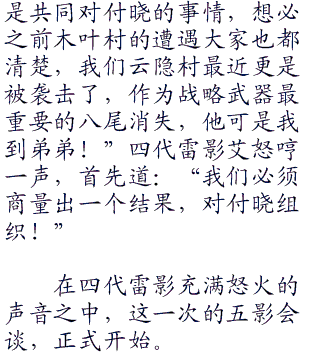 是共同对付晓的事情，想必
之前木叶村的遭遇大家也都
清楚，我们云隐村最近更是
被袭击了，作为战略武器最
重要的八尾消失，他可是我
到弟弟！”四代雷影艾怒哼
一声，首先道：“我们必须
商量出一个结果，对付晓组
织！”
在四代雷影充满怒火的
声音之中，这一次的五影会
谈，正式开始。